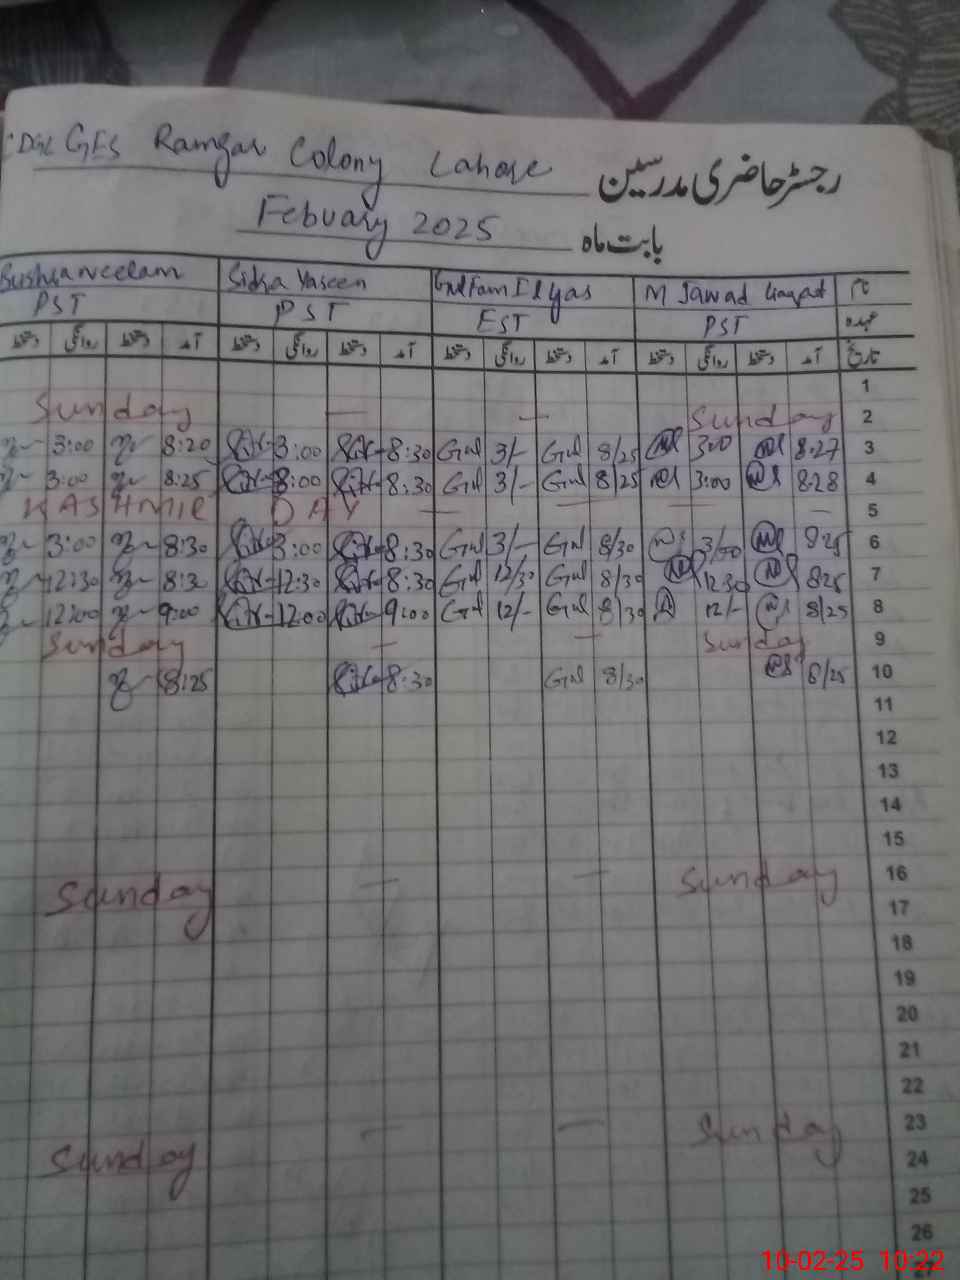 CDGL GES Ramgar Colony Lahore رجسٹر حاضری مدرسین
Febuary 2025 بابت ماہ
Bushra neelam Sidra Yaseen Gulfam Ilyas M Jawad Liaqat نام
PST PST EST PST عہدہ
دستخط روانگی دستخط آمد دستخط روانگی دستخط آمد دستخط روانگی دستخط آمد دستخط روانگی دستخط آمد تاریخ
1
Sunday — — Sunday 2
3:00 8:20 3:00 8:30 Gul 3/- Gul 8/25 3:00 8:27 3
3:00 8:25 3:00 8:30 Gul 3/- Gul 8/25 3:00 8:28 4
KASHMIR DAY — — — — 5
3:00 8:30 3:00 8:30 Gul 3/- Gul 8/30 3/00 8:25 6
12:30 8:30 12:30 8:30 Gul 12/30 Gul 8/30 12:30 8:25 7
12:00 9:00 12:00 9:00 Gul 12/- Gul 8/30 12/- 8/25 8
Sunday — — Sunday 9
8:25 8:30 Gul 8/30 8/25 10
11
12
13
14
15
Sunday — — Sunday 16
17
18
19
20
21
22
Sunday — — Sunday 23
24
25
26
10-02-25 10:22